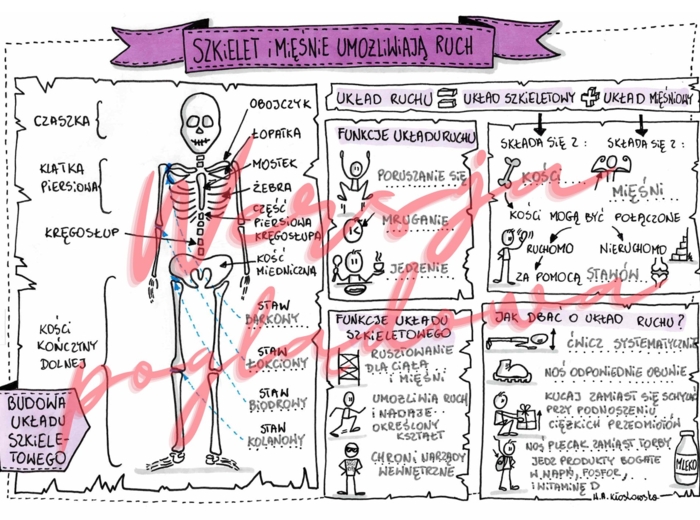 SZKIELET i MIĘŚNIE UMOŻLIWIAJĄ RUCH
CZASZKA
KLATKA
PIERSIOWA
KRĘGOSŁUP
KOŚCI
KOŃCZYNY
DOLNEJ
BUDOWA
UKŁADU
SZKIELE-
TOWEGO
OBOJCZYK
ŁOPATKA
MOSTEK
ŻEBRA
CZĘŚĆ
PIERSIOWA
KRĘGOSŁUPA
KOŚĆ
MIEDNICZNA
STAW
BARKOWY
STAW
ŁOKCIOWY
STAW
BIODROWY
STAW
KOLANOWY
UKŁAD RUCHU = UKŁAD SZKIELETOWY + UKŁAD MIĘŚNIOWY
FUNKCJE UKŁADU RUCHU
PORUSZANIE SIĘ
MRUGANIE
JEDZENIE
SKŁADA SIĘ Z :
KOŚCI
SKŁADA SIĘ Z :
MIĘŚNI
KOŚCI MOGĄ BYĆ POŁĄCZONE
RUCHOMO
NIERUCHOMO
ZA POMOCĄ STAWÓW
FUNKCJE UKŁADU
SZKIELETOWEGO
RUSZTOWANIE
DLA CIAŁA
I MIĘŚNI
UMOŻLIWIA RUCH
I NADAJE
OKREŚLONY
KSZTAŁT
CHRONI NARZĄDY
WEWNĘTRZNE
JAK DBAC O UKŁAD RUCHU ?
ĆWICZ SYSTEMATYCZNIE
NOŚ ODPOWIEDNIE OBUWIE
KUCAJ ZAMIAST SIĘ SCHYLAĆ
PRZY PODNOSZENIU
CIĘŻKICH PRZEDMIOTÓW
NOŚ PLECAK ZAMIAST TORBY
JEDZ PRODUKTY BOGATE
W WAPŃ, FOSFOR,
I WITAMINĘ D
MLEKO
Wersja
poglądowa